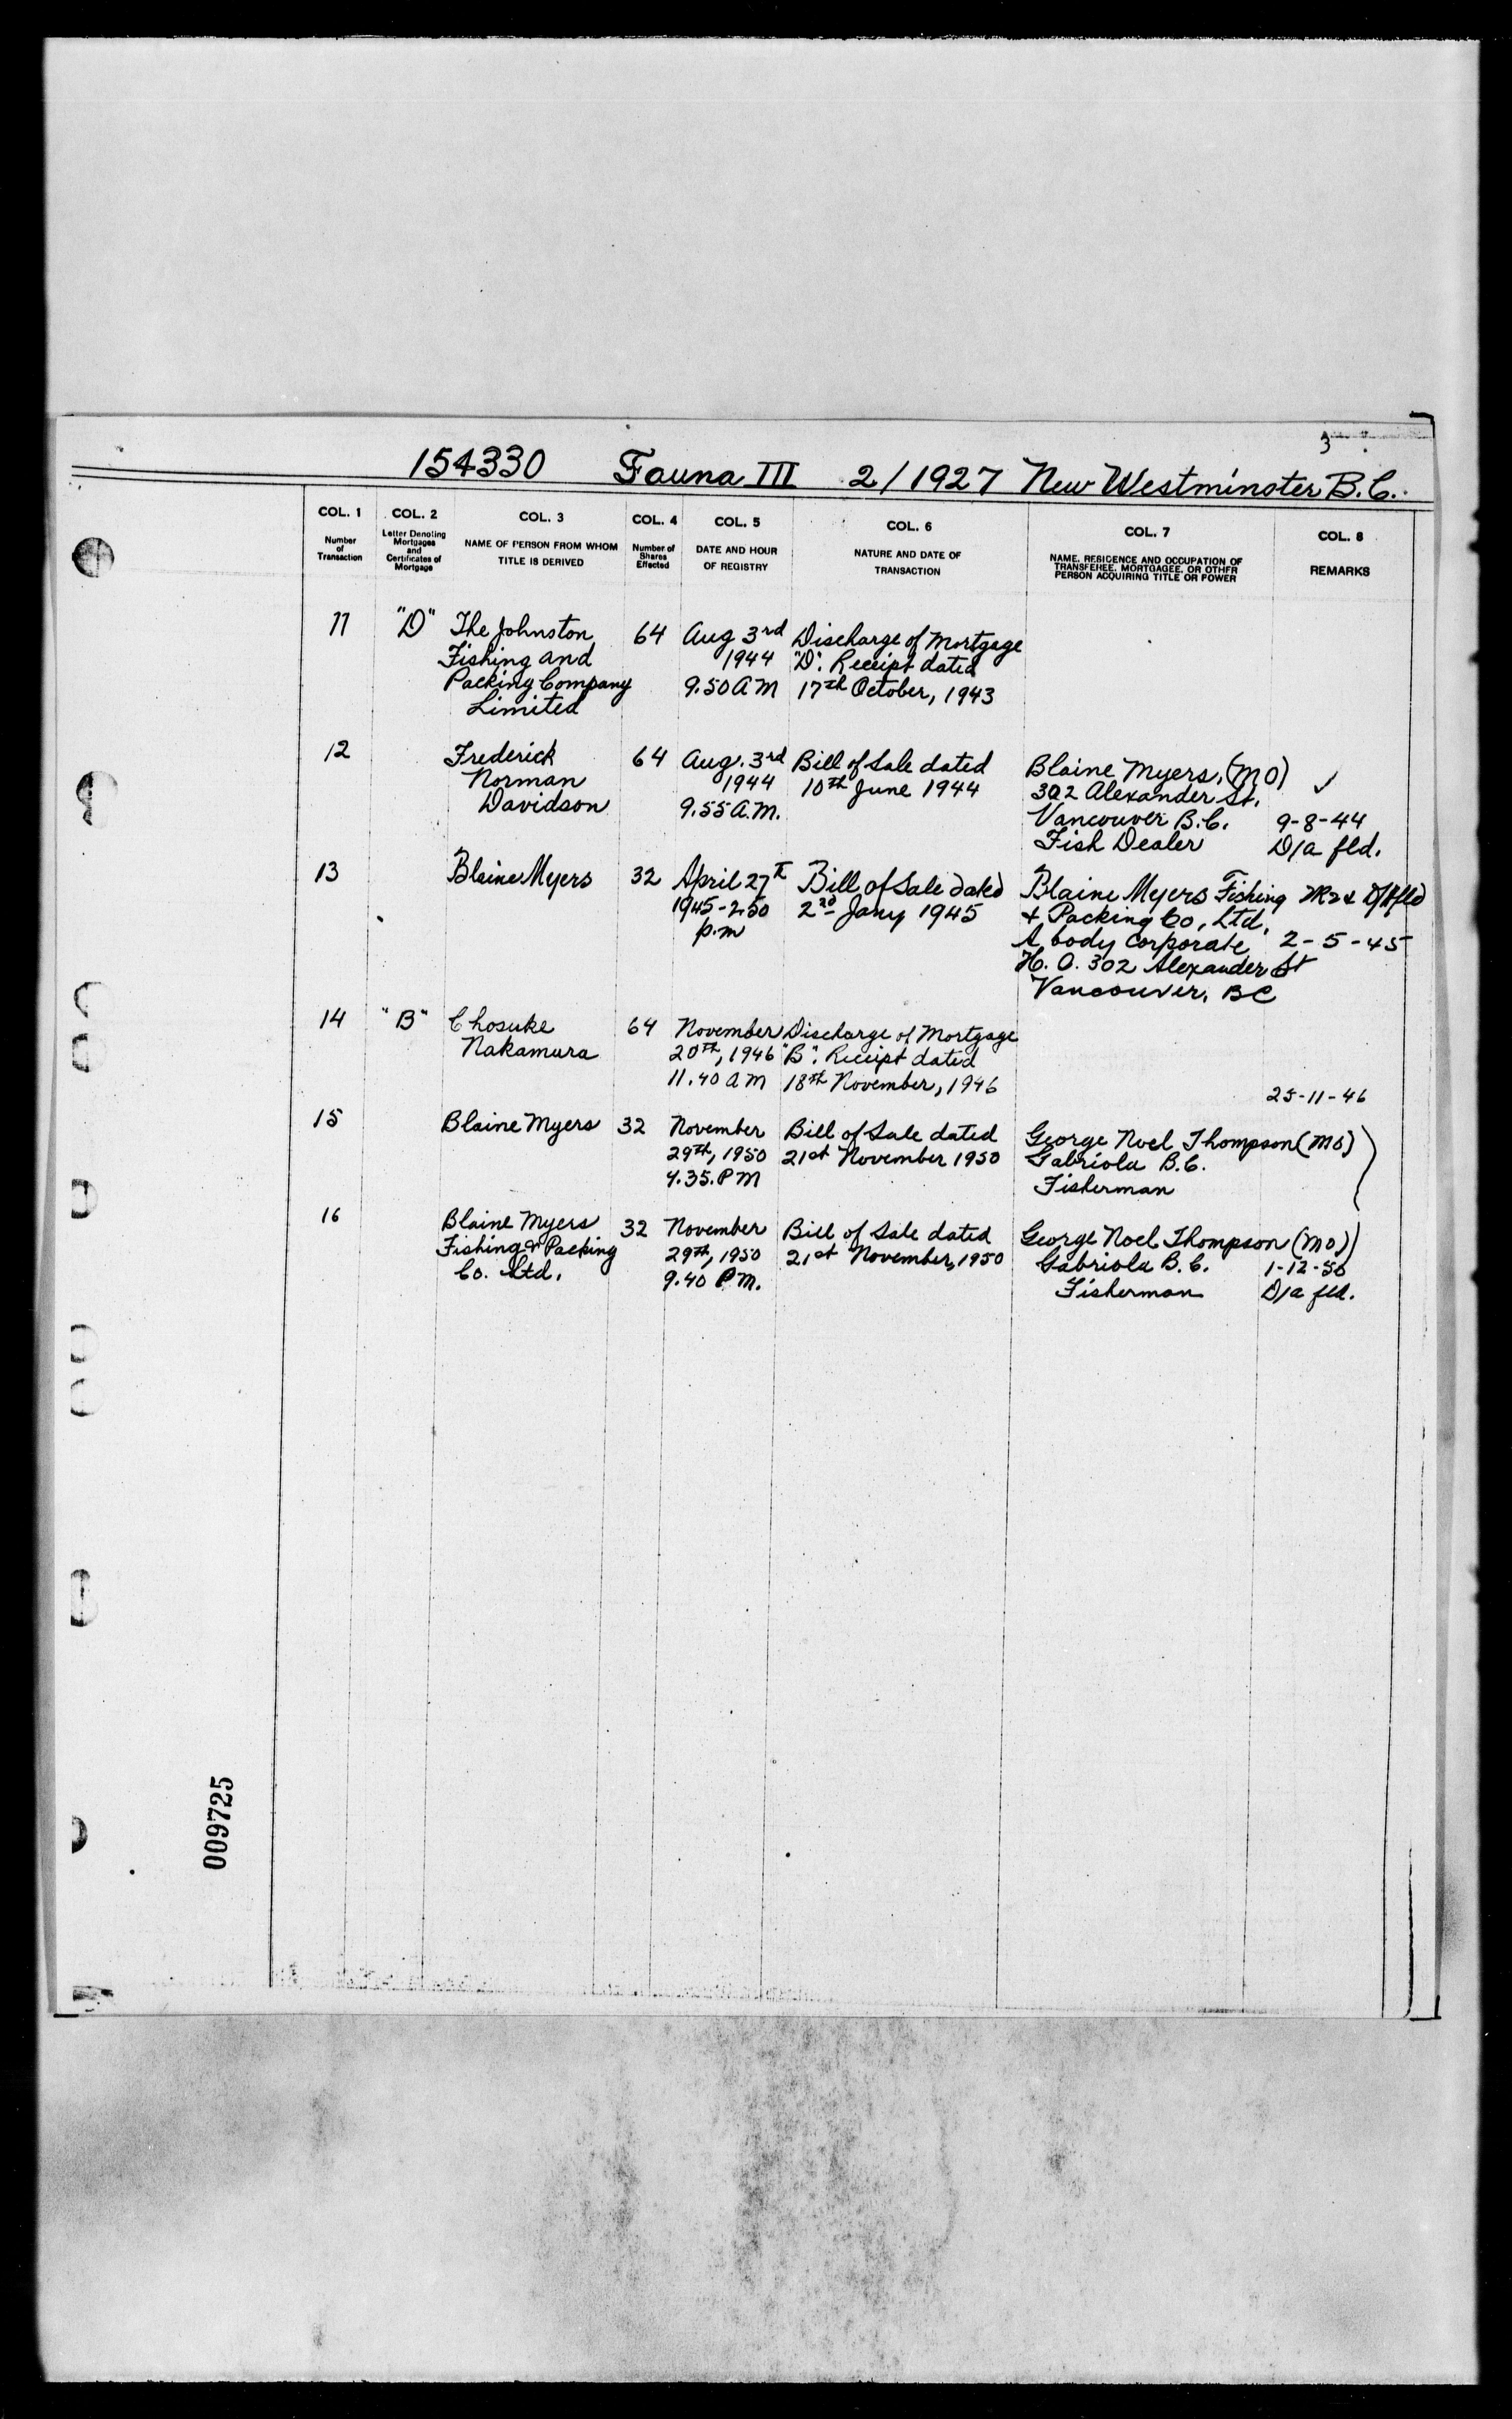 3
154330 Fauna III 2/1927 New Westminster B.C.
COL. 1 COL. 2 COL. 3 COL. 4 COL. 5 COL. 6 COL. 7 COL. 8
Number of Transaction
Letter Denoting Mortgages and Certificates of Mortgage
NAME OF PERSON FROM WHOM TITLE IS DERIVED
Number of Shares Effected
DATE AND HOUR OF REGISTRY
NATURE AND DATE OF TRANSACTION
NAME, RESIDENCE AND OCCUPATION OF TRANSFEREE, MORTGAGEE, OR OTHER PERSON ACQUIRING TITLE OR POWER
REMARKS
11 "D" The Johnston 64 Aug 3rd Discharge of Mortgage
Fishing and 1944 "D". Receipt dated
Packing Company 9.50 AM 17th October, 1943
Limited
12 Frederick 64 Aug. 3rd Bill of Sale dated Blaine Myers. (MO) ✓
Norman 1944 10th June 1944 302 Alexander St.
Davidson 9.55 A.M. Vancouver B.C. 9-8-44
Fish Dealer D/a fld.
13 Blaine Myers 32 April 27th Bill of Sale dated Blaine Myers Fishing
1945-2.50 2nd Jany 1945 + Packing Co, Ltd,
p.m A body corporate 2-5-45
H.O. 302 Alexander St
Vancouver, BC
14 "B" Chosuke 64 November Discharge of Mortgage
Nakamura 20th, 1946 "B". Receipt dated
11.40 AM 18th November, 1946 25-11-46
15 Blaine Myers 32 November Bill of Sale dated George Noel Thompson (MO)
29th, 1950 21st November 1950 Gabriola B.C.
4.35. PM Fisherman
16 Blaine Myers 32 November Bill of Sale dated George Noel Thompson (MO)
Fishing & Packing 29th, 1950 21st November, 1950 Gabriola B.C. 1-12-50
Co. Ltd. 9.40 P.M. Fisherman D/a fld.
009725